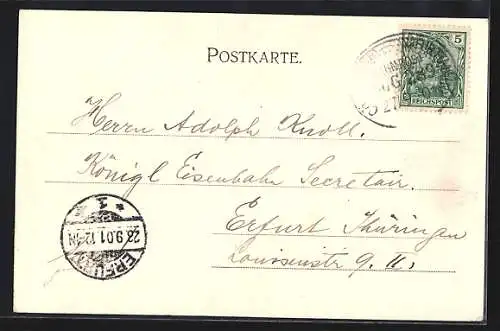 POSTKARTE.
5
REICHSPOST
Herrn Adolph Knoll.
Königl Eisenbahn Secretair.
Erfurt Thüringen
Louisenstr 9. II,
* 1 *
28.9.01. 12-1N
ERFURT